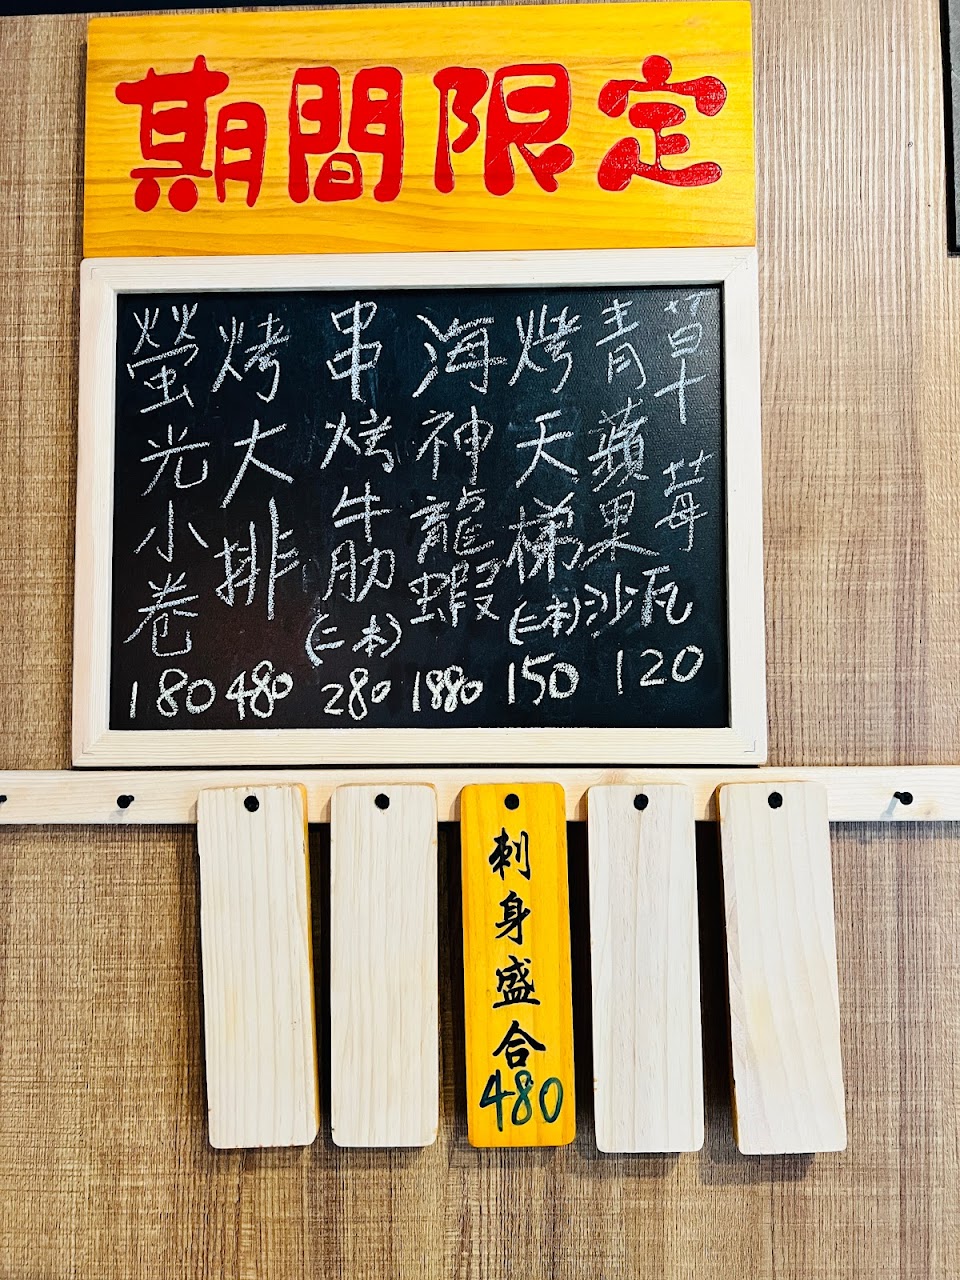 期間限定
草莓
青蘋果沙瓦
120
烤天梯(二本)
150
海神龍蝦
1880
串烤牛肋(二本)
280
烤大排
480
螢光小卷
180
刺身盛合
480